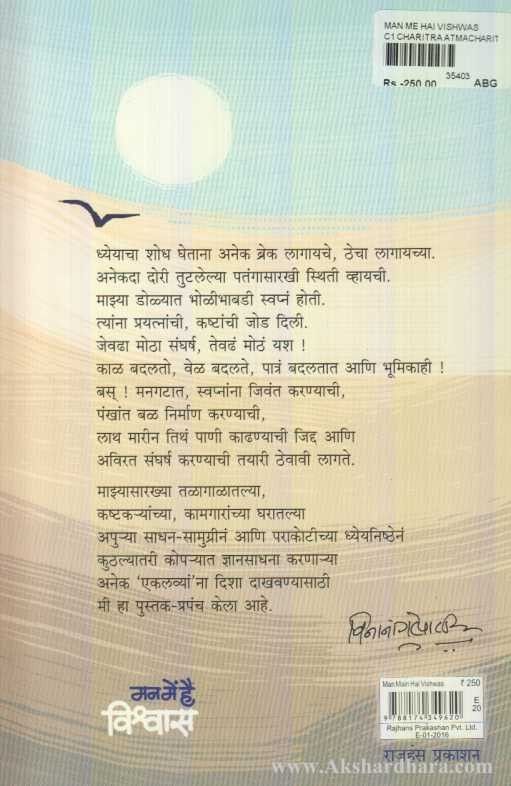 MAN ME HAI VISHWAS
C1 CHARITRA ATMACHARIT
35403
Rs.-250.00 ABG
ध्येयाचा शोध घेताना अनेक ब्रेक लागायचे, ठेचा लागायच्या.
अनेकदा दोरी तुटलेल्या पतंगासारखी स्थिती व्हायची.
माझ्या डोळ्यात भोळीभाबडी स्वप्नं होती.
त्यांना प्रयत्नांची, कष्टांची जोड दिली.
जेवढा मोठा संघर्ष, तेवढं मोठं यश !
काळ बदलतो, वेळ बदलते, पात्रं बदलतात आणि भूमिकाही !
बस् ! मनगटात, स्वप्नांना जिवंत करण्याची,
पंखांत बळ निर्माण करण्याची,
लाथ मारीन तिथं पाणी काढण्याची जिद्द आणि
अविरत संघर्ष करण्याची तयारी ठेवावी लागते.
माझ्यासारख्या तळागाळातल्या,
कष्टकऱ्यांच्या, कामगारांच्या घरातल्या
अपुऱ्या साधन-सामुग्रीनं आणि पराकोटीच्या ध्येयनिष्ठेनं
कुठल्यातरी कोपऱ्यात ज्ञानसाधना करणाऱ्या
अनेक 'एकलव्यां'ना दिशा दाखवण्यासाठी
मी हा पुस्तक-प्रपंच केला आहे.
मन में है
विश्वास
Man Main Hai Vishwas ₹ 250
E
20
9 788174 349620
Rajhans Prakashan Pvt. Ltd.
E-01-2016
राजहंस प्रकाशन
www.Akshardhara.com